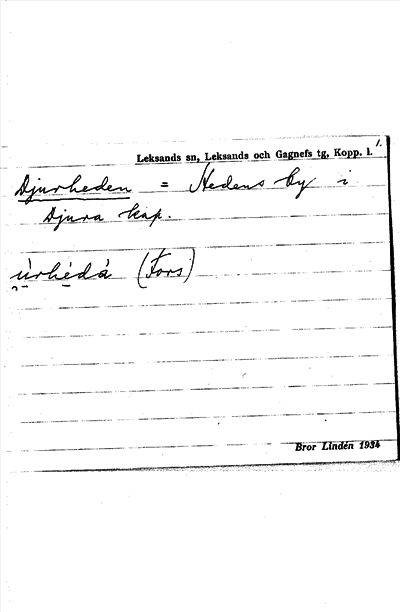 1.
Leksands sn, Leksands och Gagnefs tg, Kopp. l.
Djurheden = Hedens by i
Djura kap.
ùrhèdà (Fors)
Bror Lindén 1934